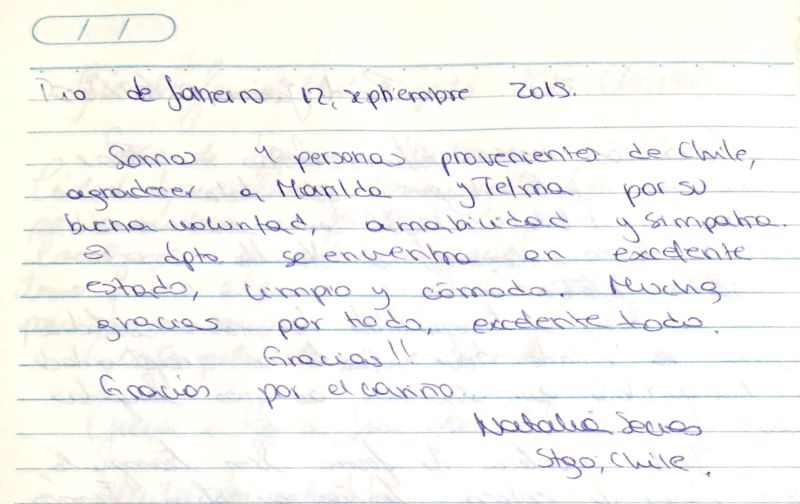 / /
Rio de Janeiro 12, septiembre 2015.
Somos 4 personas provenientes de Chile,
agradecer a Marilda y Telma por su
buena voluntad, amabilidad y simpatia.
El dpto se encuentra en excelente
estado, limpio y cómodo. Muchas
gracias por todo, excelente todo.
Gracias!!
Gracias por el cariño.
Natalia
Stgo, Chile.